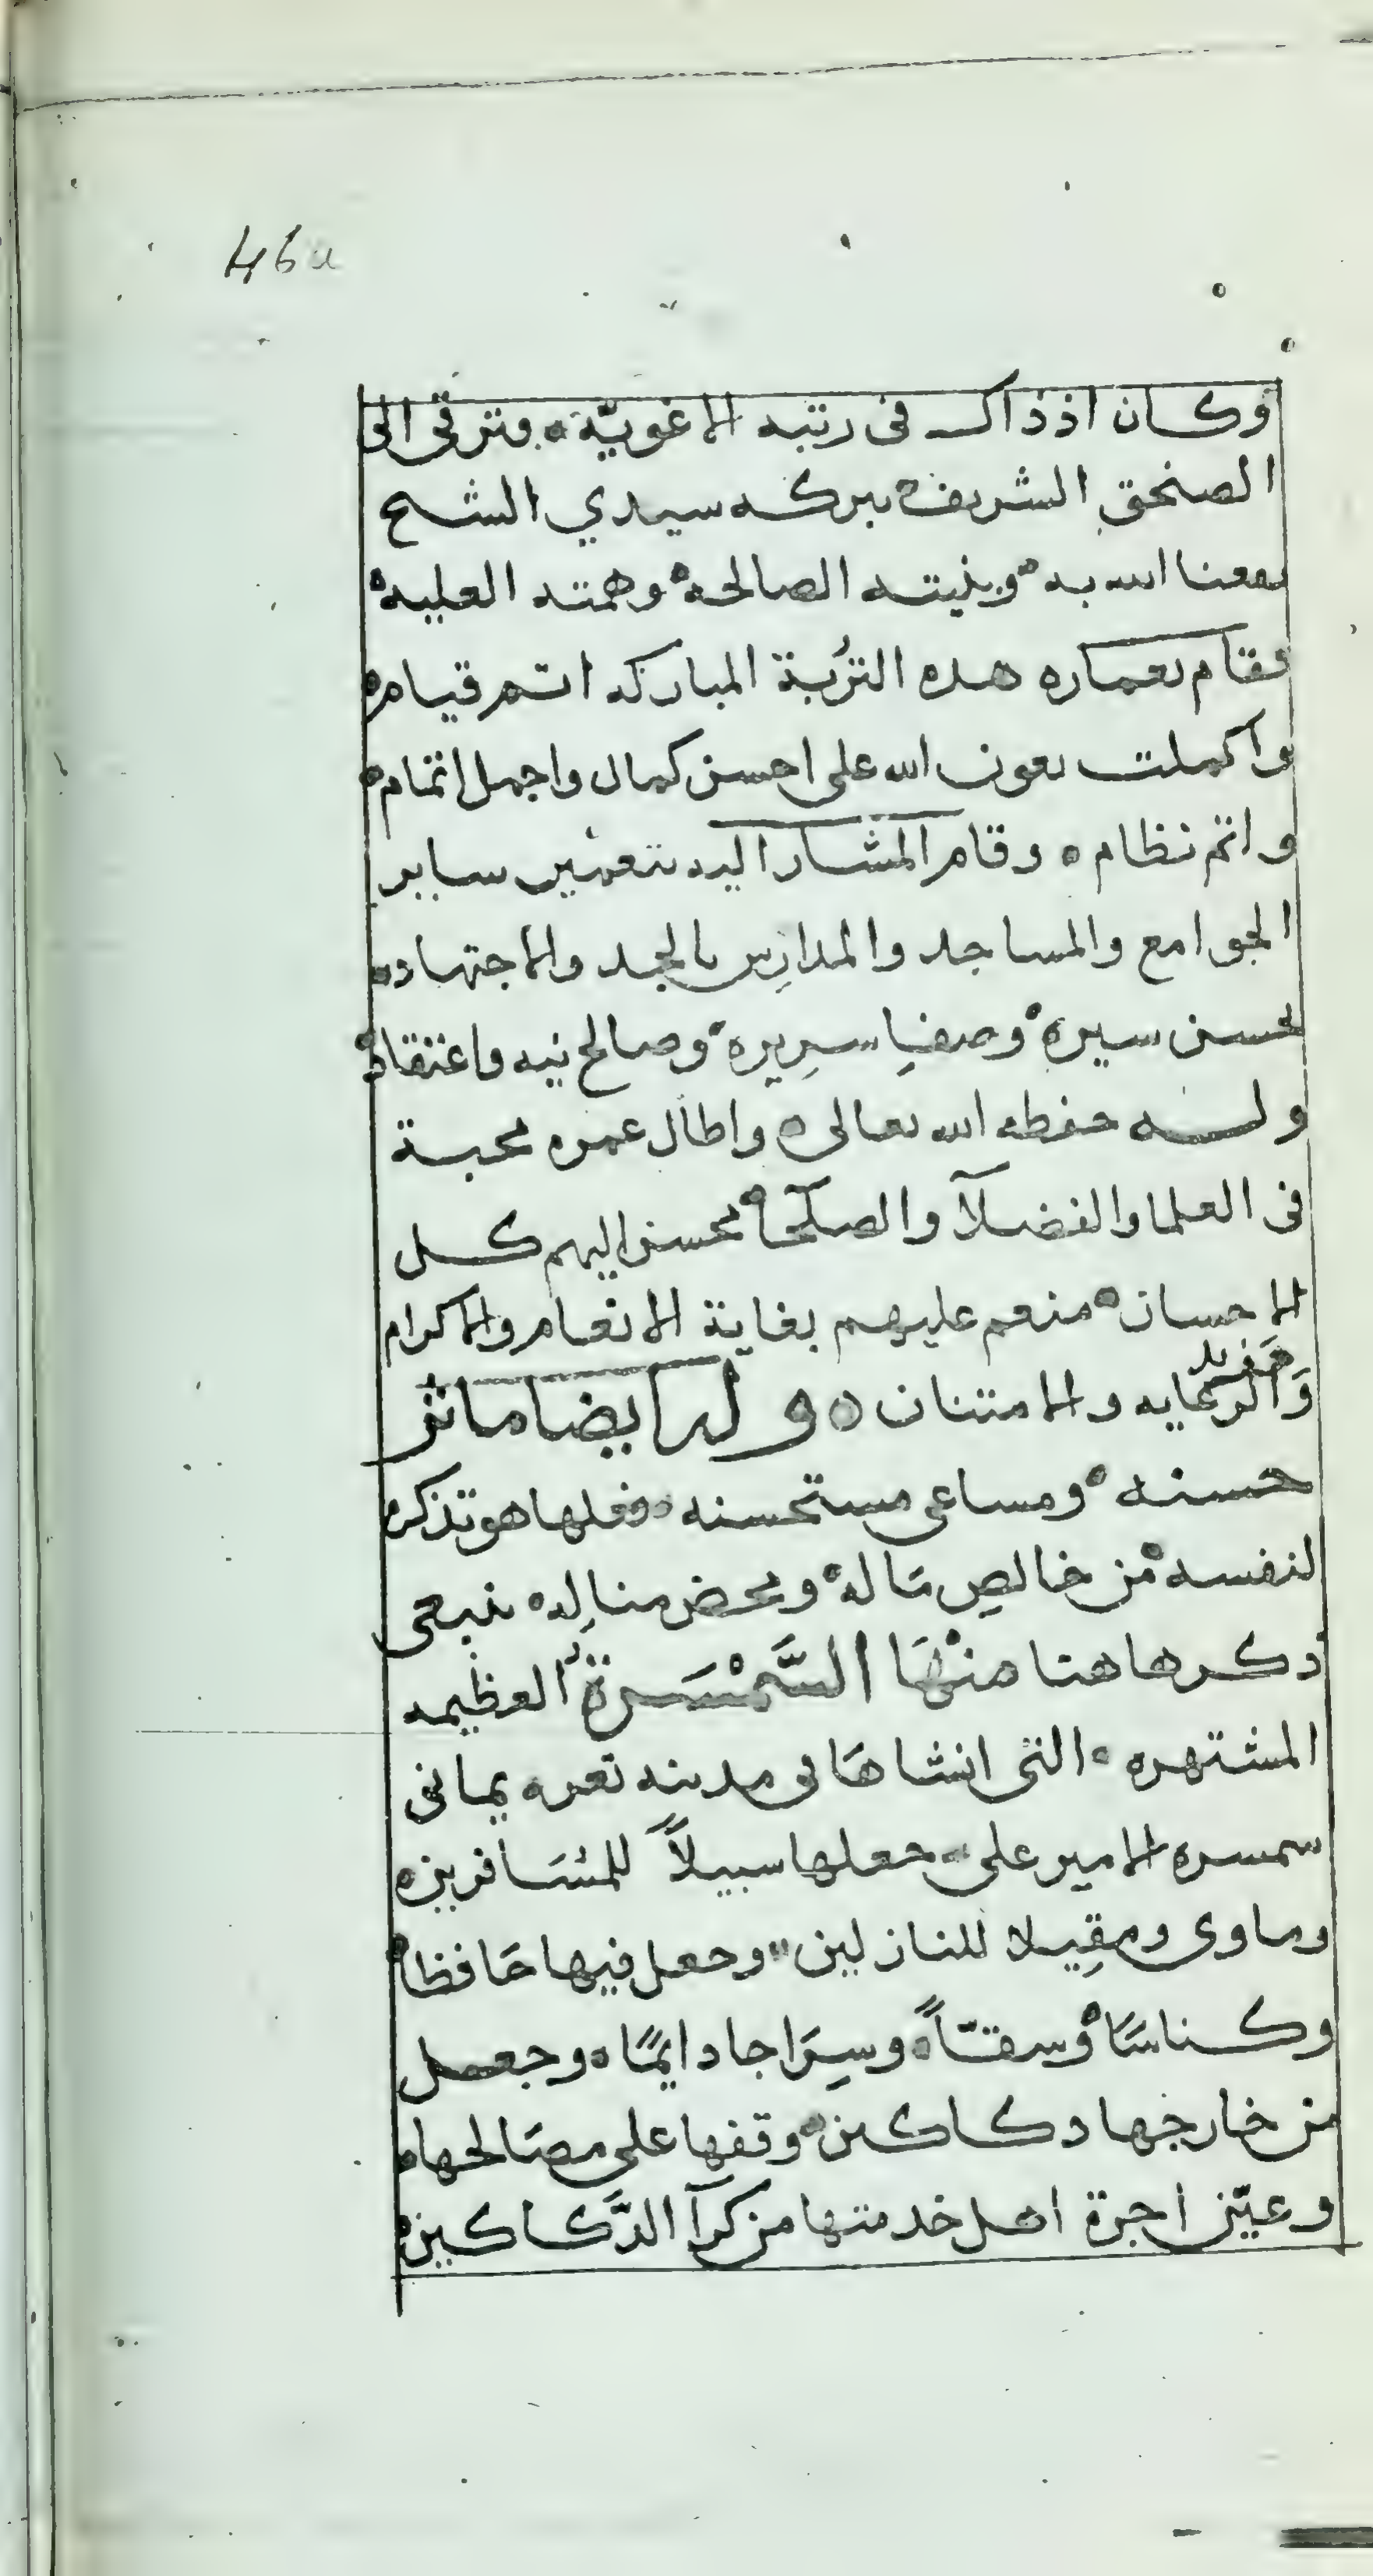 46a
وكان اذ ذاك فى رتبه الاغويّه ه وترقى الى
الصنجق الشريف ه ببركه سيدي الشيخ
نفعنا الله به ه وبنيته الصالحه ه وهمته العليه ه
فقام بعماره هذه التُربة المباركه اتم قيام ه
واكملت بعون الله على احسن كمال واجمل اتمام ه
واتم نظام ه وقام المشار اليه بتعمير ساير
الجوامع والمساجد والمدارِس بالجد والاجتهاد ه
بحسن سيره ه وصفاِ سرِيره ه وصالح نيه واعتقاد ه
وله حفظه الله تعالى ه واطال عمره محبة
فى العلما والفضلآ والصلحآ ه محسن اليهم كل
الاحسان ه منعم عليهم بغاية الانعام والاكرام
ومزيد
وَالرعَايه والامتنان ه وله ايضا ماثر
حسنه ه ومساعى مستحسنه ه فعلها هو تذكره
لنفسه ه من خالصِ مَاله ه ومحض منالِه ه ينبغى
ذكرها هنا منْهَا السَّمْسَرةُ العظيمه
المشتهره ه التى انشاهَا فى مدينه تعز ه يمانى
سمسره الامير على ه جعلها سبيلاً للمسَافرين ه
وماوى ومقِيلا للنازلين ه وجعل فيها حَافظا ه
وكناسَا ه وسقّاً ه وسِرَاجا دايمًا ه وجعل
من خارجها دكاكين ه وقفها على مصَالحها ه
وعيّن اجرة اهل خدمتها من كرآ الدَّكاكين ه